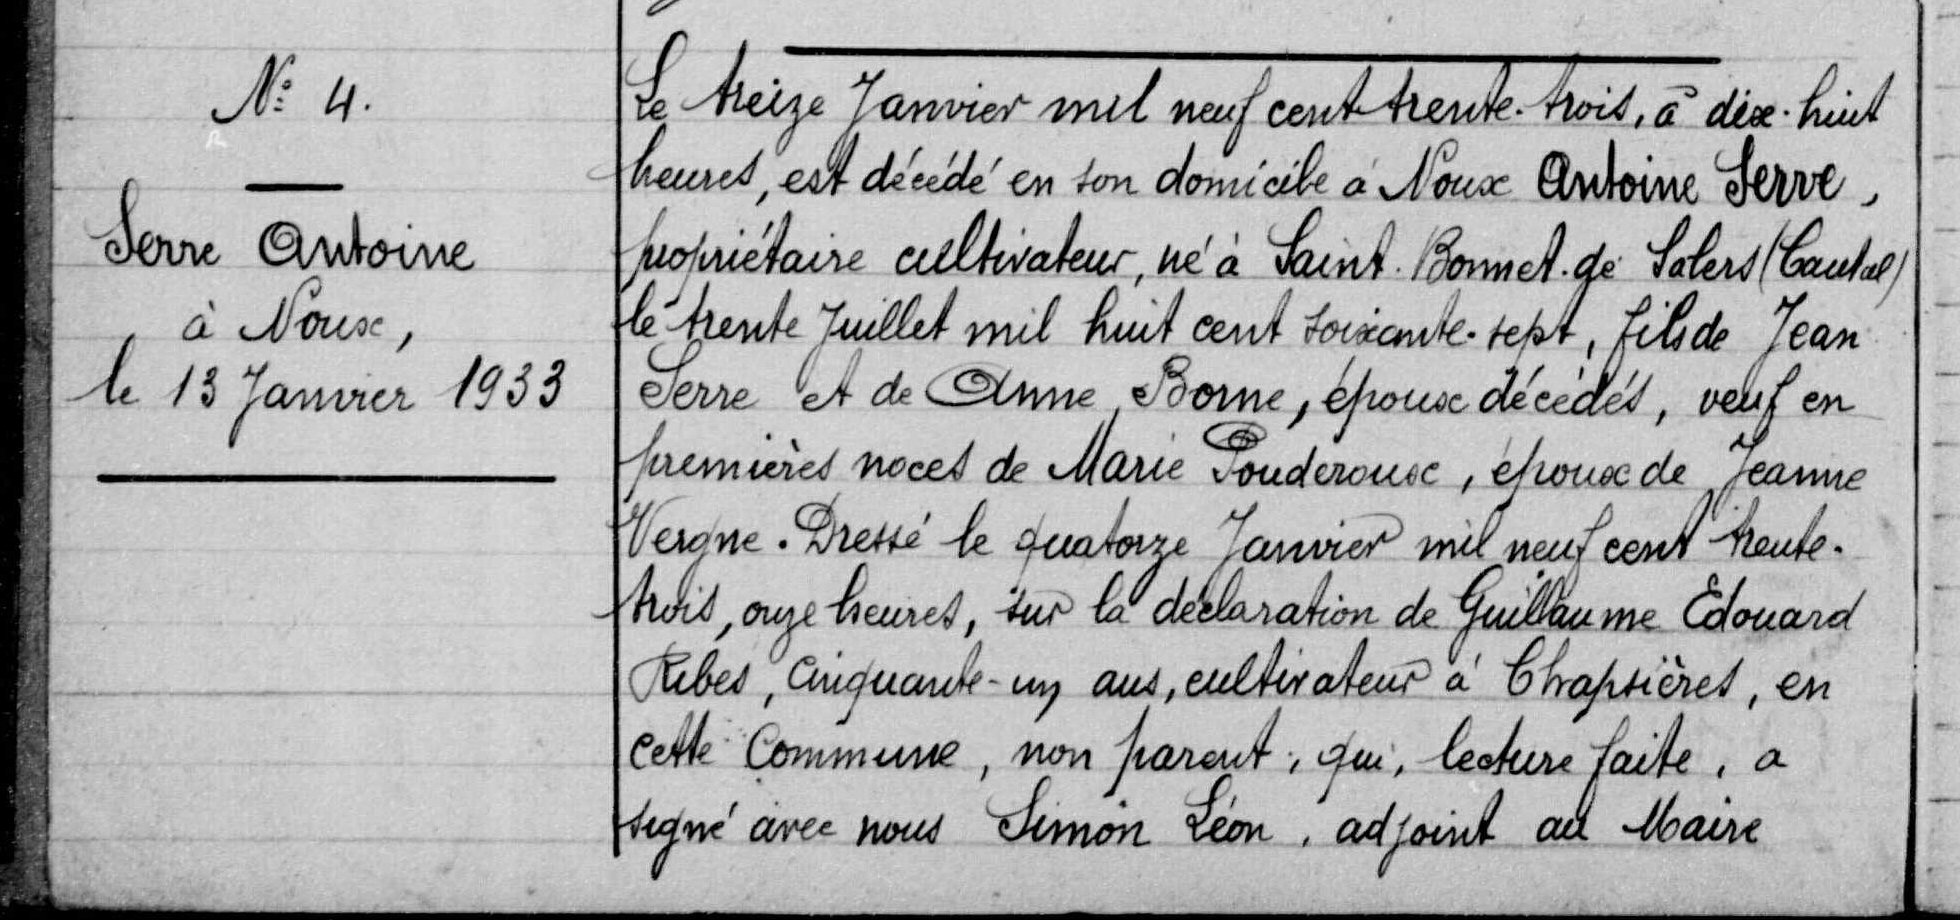 N° 4.
Serre Antoine
à Noux,
le 13 Janvier 1933
Le treize Janvier mil neuf cent trente-trois, à dix-huit
heures, est décédé en son domicile à Noux Antoine Serre,
propriétaire cultivateur, né à Saint-Bonnet-de Salers (Cantal)
le trente Juillet mil huit cent soixante-sept, fils de Jean
Serre et de Anne Borne, époux décédés, veuf en
premières noces de Marie Pouderoux, époux de Jeanne
Vergne. Dressé le quatorze Janvier mil neuf cent trente-
trois, onze heures, sur la déclaration de Guillaume Edouard
Ribes, cinquante-un ans, cultivateur à Chapsières, en
cette Commune, non parent, qui, lecture faite, a
signé avec nous Simon Léon, adjoint au Maire